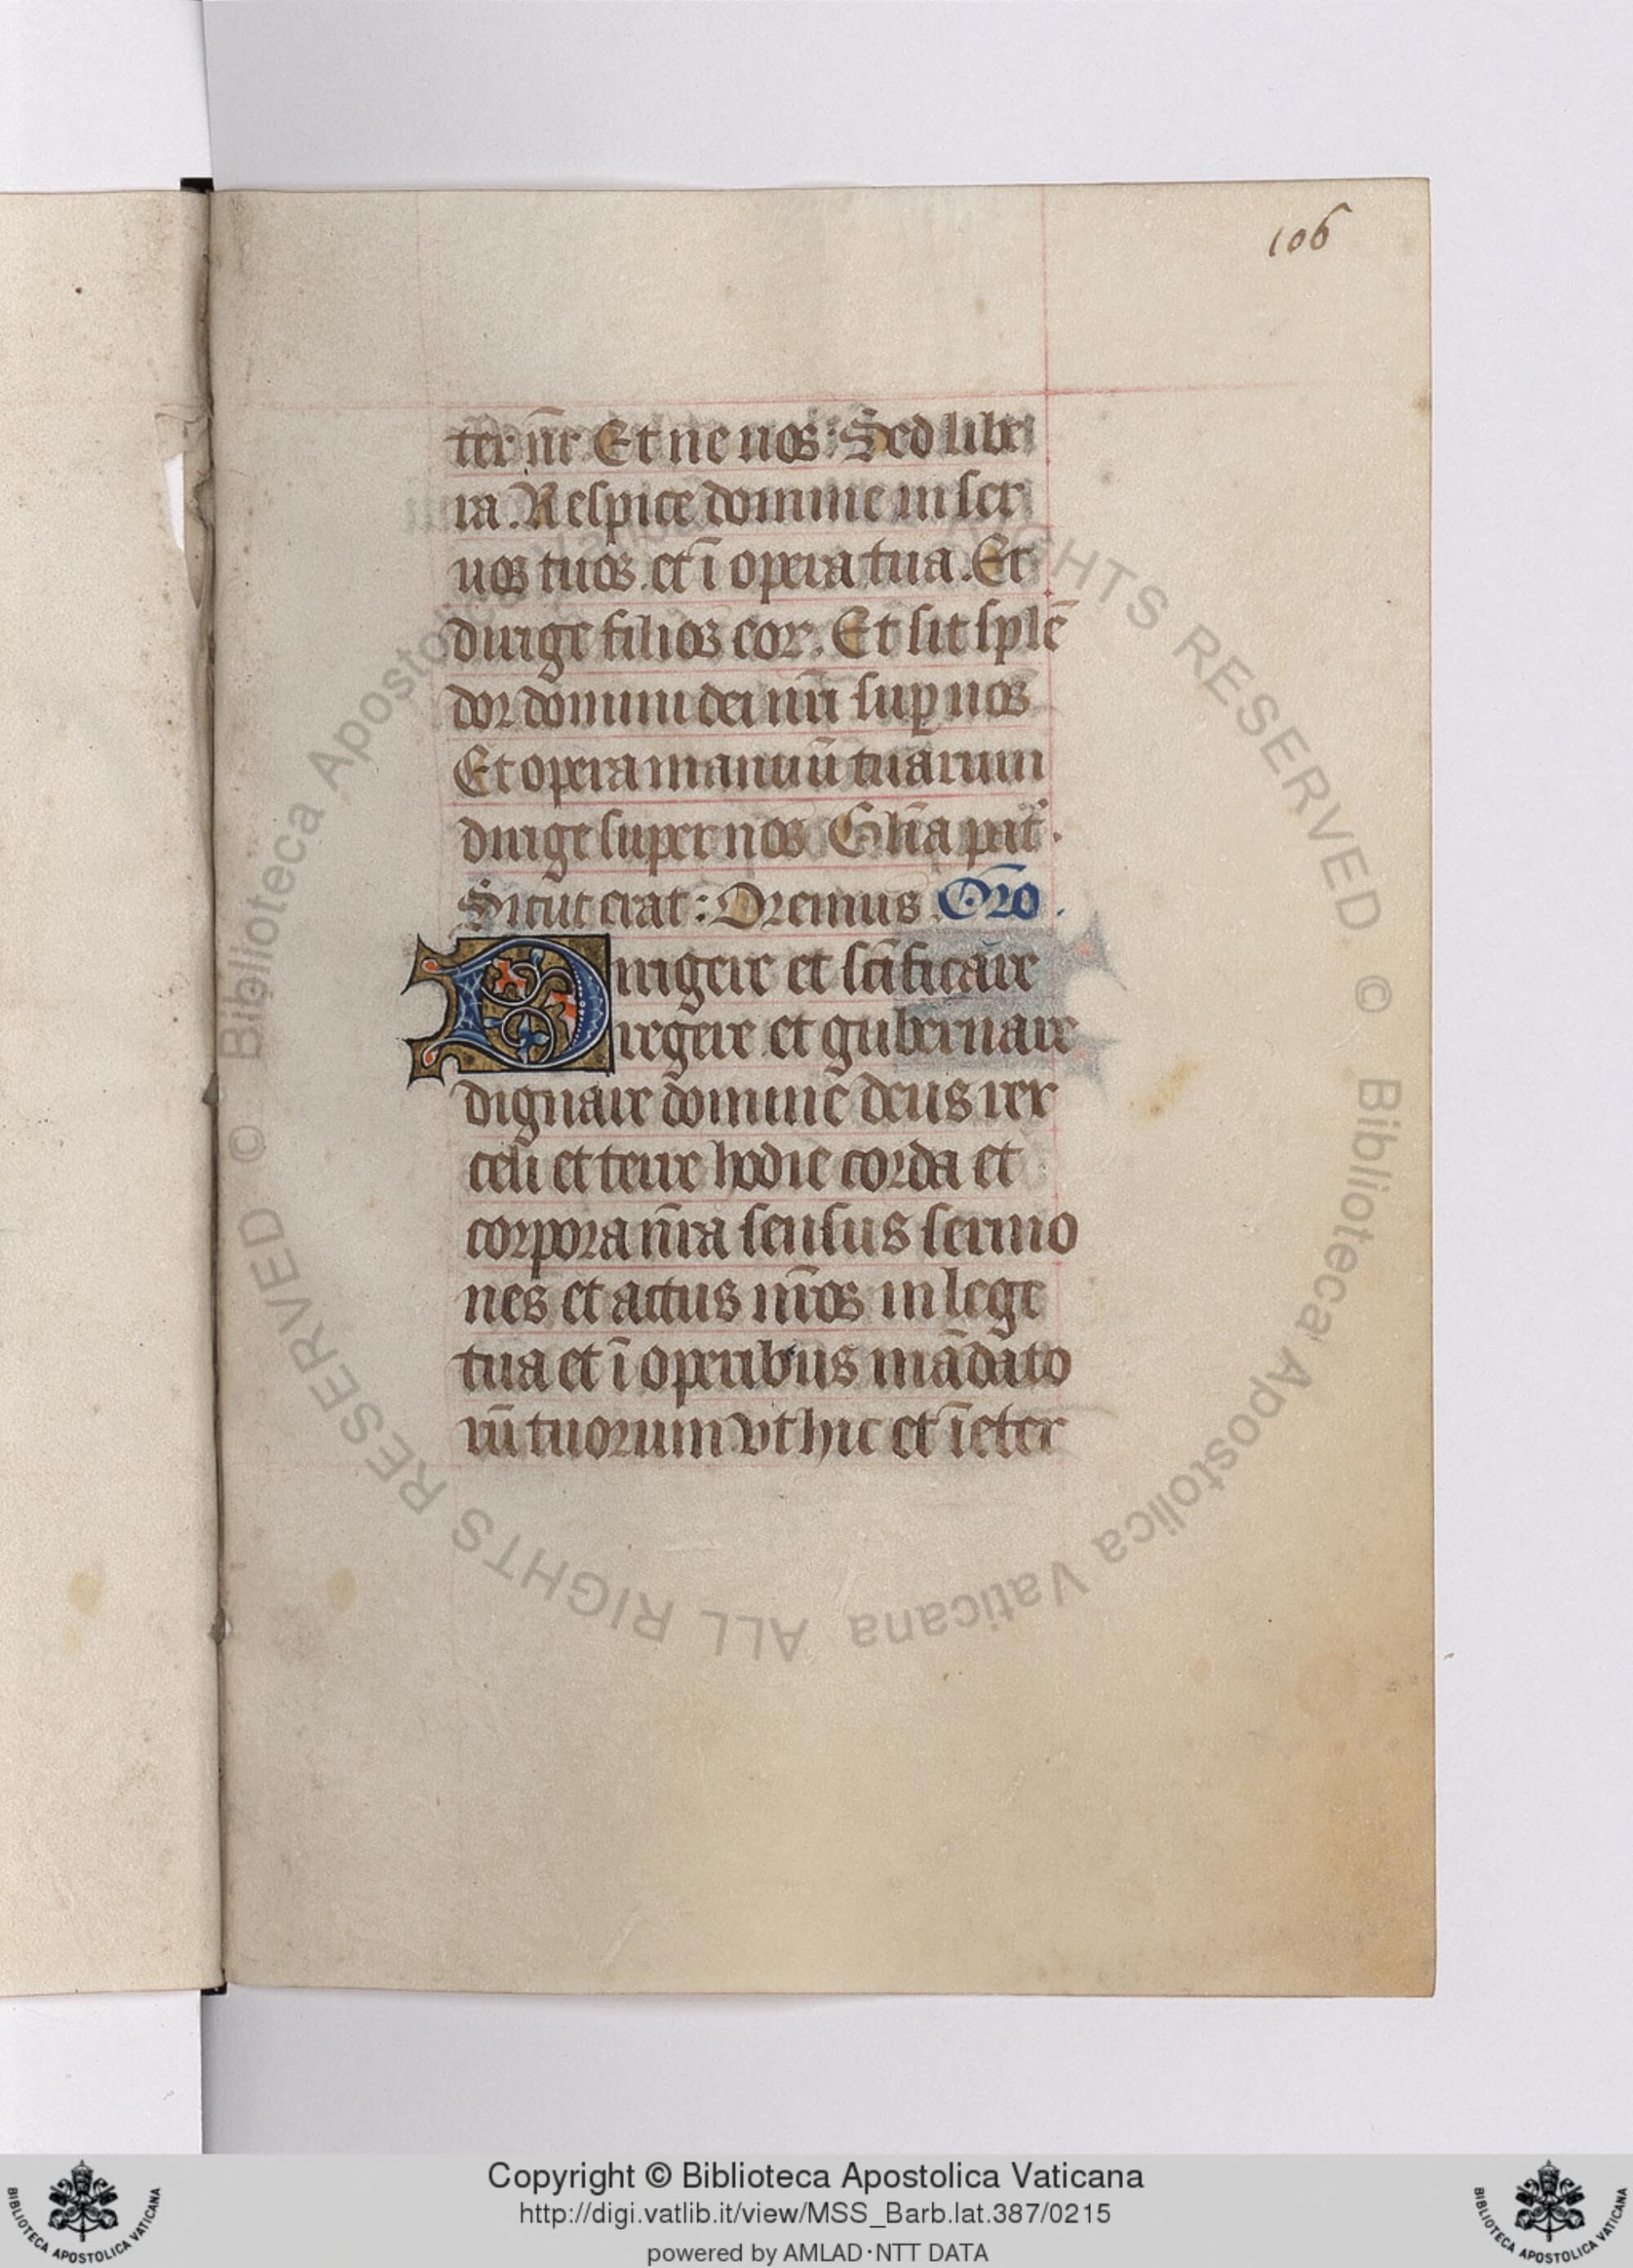 106
ter nr̄ Et ne nos: Sed libe
ra. Respice domine in ser
uos tuos. et ī opera tua. Et
dirige filios eor. Et sit splē
dor domini dei nr̄i sup nos
Et opera manuū tuarum
dirige super nos Gl̄ia pat̄.
Sicut erat: Oremus. Or̄o.
Dirigere et sc̄ificare
regere et gubernare
dignare domine deus rex
celi et terre hodie corda et
corpora nr̄a sensus sermo
nes et actus nr̄os in lege
tua et ī operibus mādato
rū tuorum vt hic et ī eter
© Biblioteca Apostolica Vaticana ALL RIGHTS RESERVED © Biblioteca Apostolica Vaticana ALL RIGHTS RESERVED
Copyright © Biblioteca Apostolica Vaticana
http://digi.vatlib.it/view/MSS_Barb.lat.387/0215
powered by AMLAD·NTT DATA
BIBLIOTECA APOSTOLICA VATICANA
BIBLIOTECA APOSTOLICA VATICANA